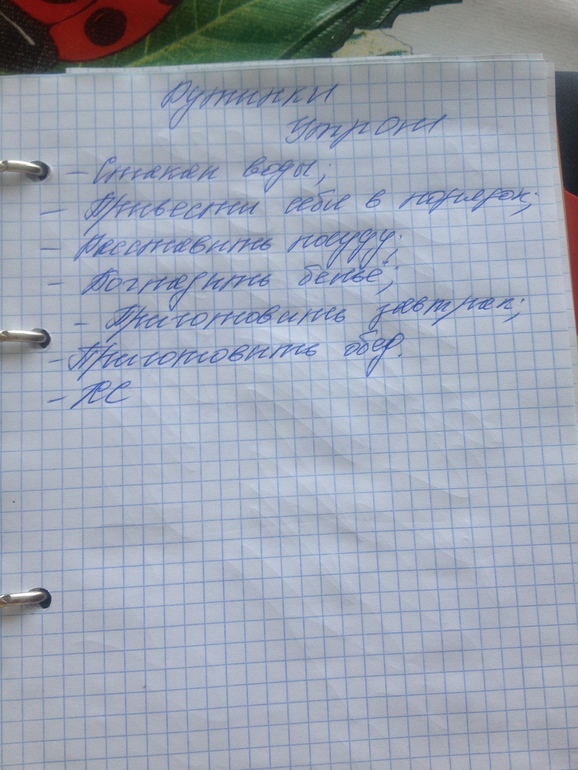 Рутинки
Утром
- Стакан воды;
- Привести себя в порядок;
- Расставить посуду;
- Погладить белье;
- Приготовить завтрак;
- Приготовить обед.
- КС